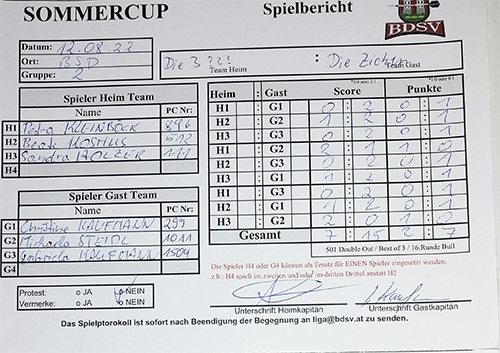 SOMMERCUP Spielbericht
BDSV
Datum: 12.08.22
Ort: BSD
Gruppe: 2
Die 3 ??? : Die Zicken
Team Heim Team Gast
Spieler Heim Team
Name PC Nr:
H1 Petra KLEINBÖCK 896
H2 Beate KOSMUS 512
H3 Sandra HOLZER 111
H4
Spieler Gast Team
Name PC Nr:
G1 Christine KAUFMANN 299
G2 Michaela STEIDL 1011
G3 Gabriela KAUFMANN 1504
G4
Heim : Gast Score Punkte
H1 G1 0 : 2 0 : 1
H2 G2 1 : 2 0 : 1
H3 G3 0 : 2 0 : 1
H1 G2 2 : 1 1 : 0
H2 G3 0 : 2 0 : 1
H3 G1 1 : 2 0 : 1
H1 G3 0 : 2 0 : 1
H2 G1 1 : 2 0 : 1
H3 G2 2 : 0 1 : 0
Gesamt 7 : 15 2 : 7
501 Double Out / Best of 3 / 16.Runde Bull
Die Spieler H4 oder G4 können als Ersatz für EINEN Spieler eingesetzt werden.
z.b.: H4 spielt im zweiten und/oder im dritten Drittel anstatt H2
Protest: o JA o NEIN
Vermerke: o JA o NEIN
Unterschrift Heimkapitän Unterschrift Gastkapitän
Das Spielprotokoll ist sofort nach Beendigung der Begegnung an liga@bdsv.at zu senden.